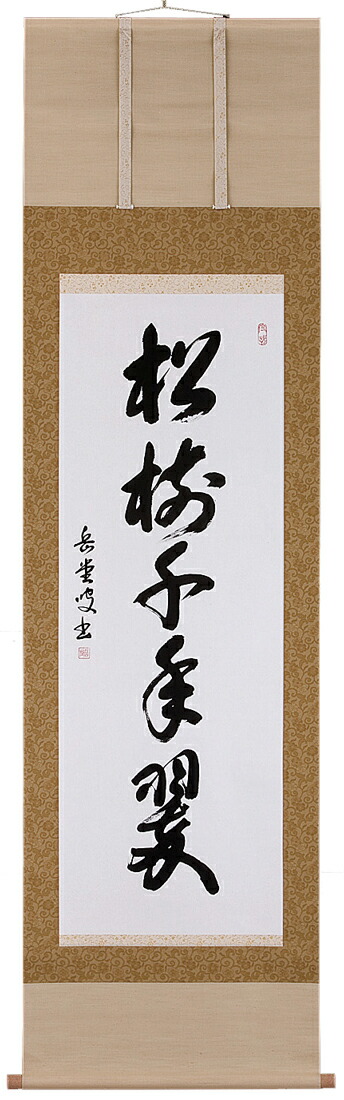 松樹千年翠
岳堂暁書